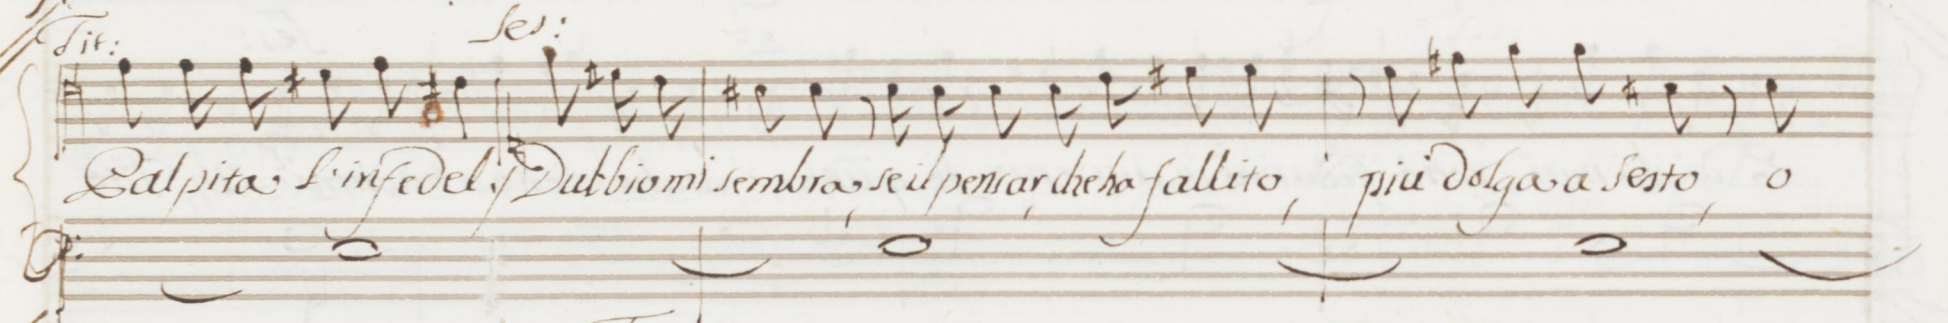 Tit: Ses:
Palpita l'infedel. Dubbio mi sembra, se il pensar, che ha fallito, più dolga a Sesto, o